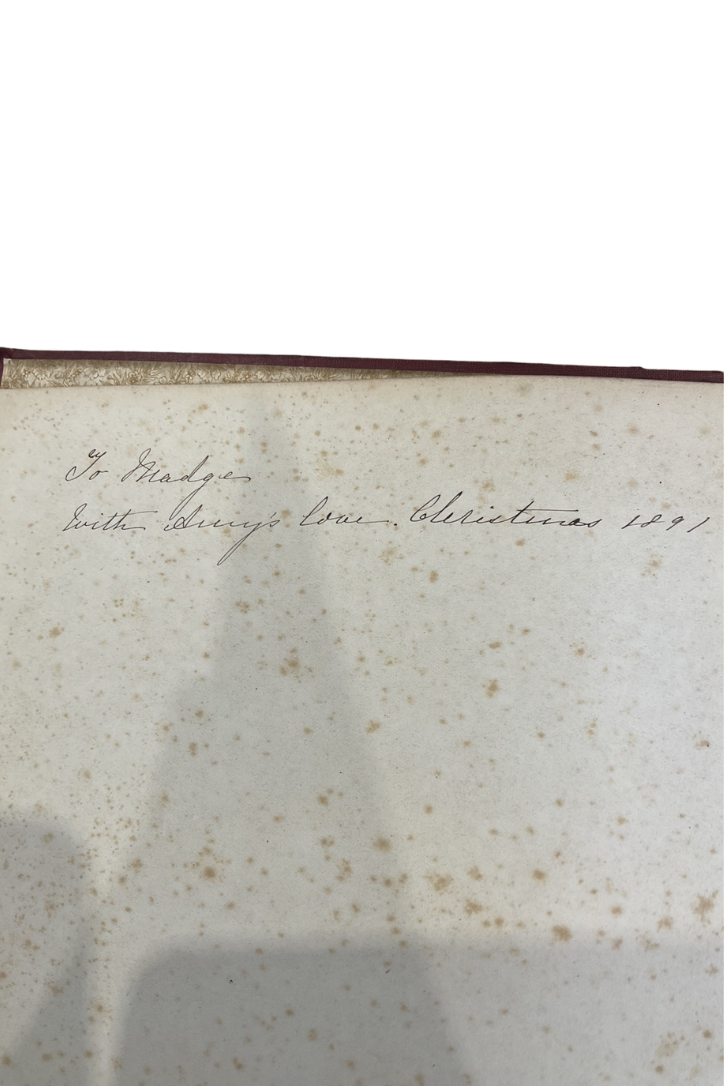 To Madge
With Amy's love. Christmas 1891